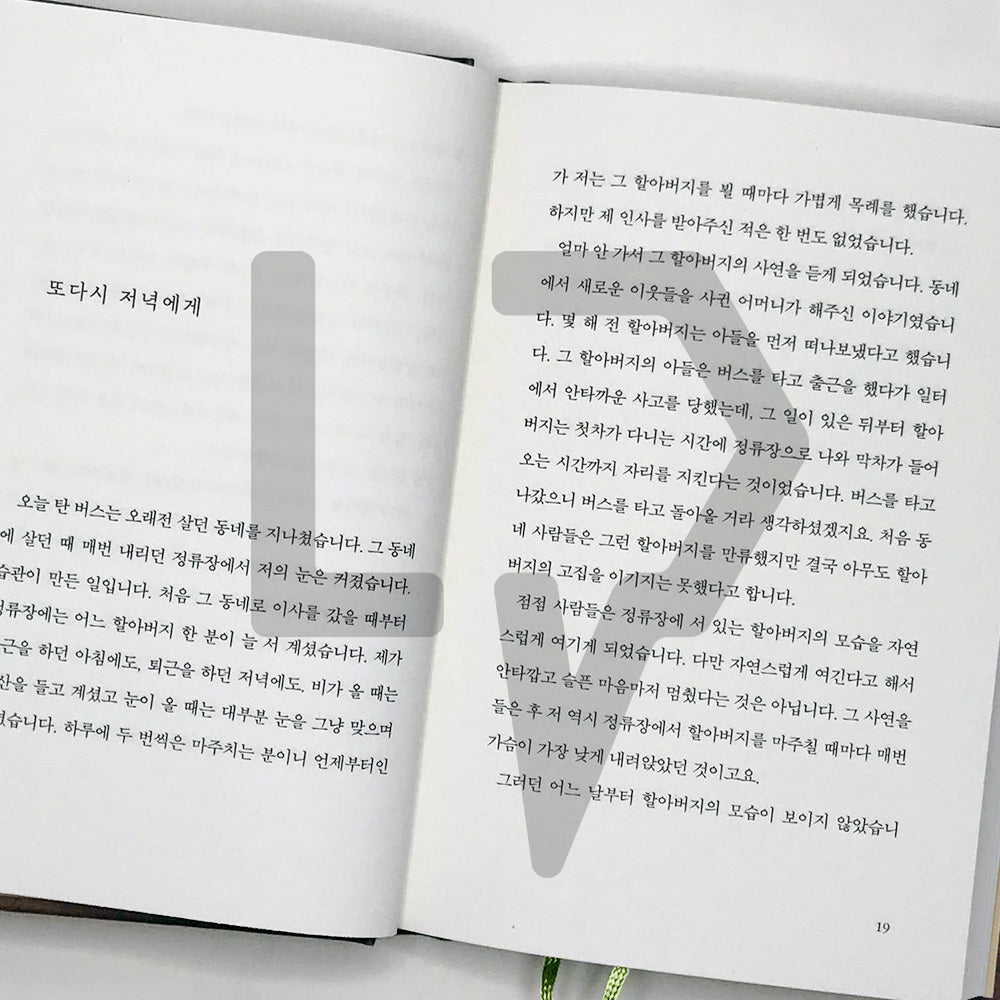 또다시 저녁에게
오늘 탄 버스는 오래전 살던 동네를 지나쳤습니다. 그 동네
에 살던 때 매번 내리던 정류장에서 저의 눈은 커졌습니다.
습관이 만든 일입니다. 처음 그 동네로 이사를 갔을 때부터
정류장에는 어느 할아버지 한 분이 늘 서 계셨습니다. 제가
근을 하던 아침에도, 퇴근을 하던 저녁에도. 비가 올 때는
산을 들고 계셨고 눈이 올 때는 대부분 눈을 그냥 맞으며
하루에 두 번씩은 마주치는 분이니 언제부터인
가 저는 그 할아버지를 뵐 때마다 가볍게 목례를 했습니다.
하지만 제 인사를 받아주신 적은 한 번도 없었습니다.
얼마 안 가서 그 할아버지의 사연을 듣게 되었습니다. 동네
에서 새로운 이웃들을 사귄 어머니가 해주신 이야기였습니
다. 몇 해 전 할아버지는 아들을 먼저 떠나보냈다고 했습니
다. 그 할아버지의 아들은 버스를 타고 출근을 했다가 일터
에서 안타까운 사고를 당했는데, 그 일이 있은 뒤부터 할아
버지는 첫차가 다니는 시간에 정류장으로 나와 막차가 들어
오는 시간까지 자리를 지킨다는 것이었습니다. 버스를 타고
나갔으니 버스를 타고 돌아올 거라 생각하셨겠지요. 처음 동
네 사람들은 그런 할아버지를 만류했지만 결국 아무도 할아
버지의 고집을 이기지는 못했다고 합니다.
점점 사람들은 정류장에 서 있는 할아버지의 모습을 자연
스럽게 여기게 되었습니다. 다만 자연스럽게 여긴다고 해서
안타깝고 슬픈 마음마저 멈췄다는 것은 아닙니다. 그 사연을
들은 후 저 역시 정류장에서 할아버지를 마주칠 때마다 매번
가슴이 가장 낮게 내려앉았던 것이고요.
그러던 어느 날부터 할아버지의 모습이 보이지 않았습니
19